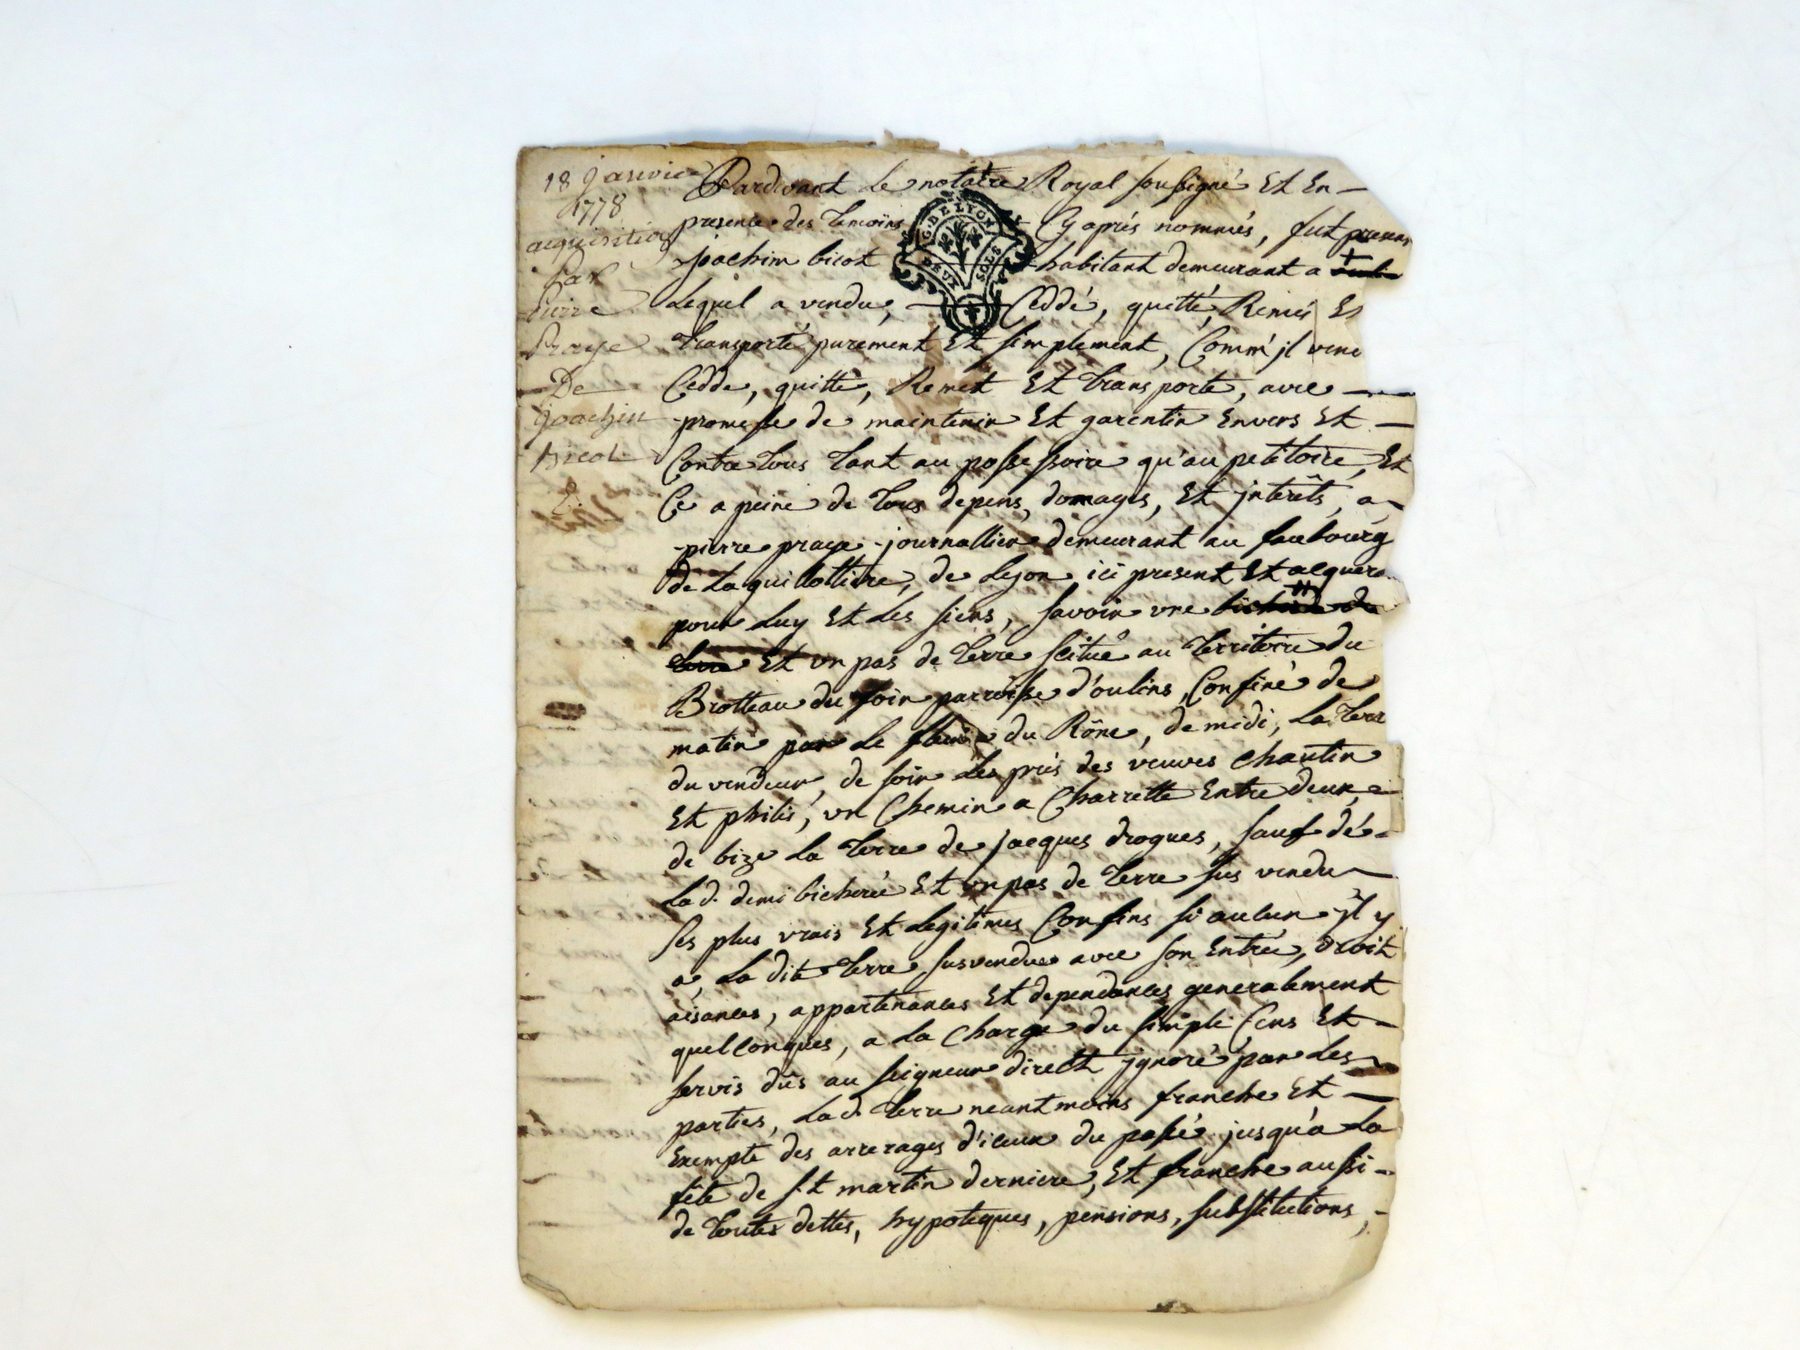 18 janvier
1778
acquisition
Par
pierre
Praye
De
joachin
bicot
Pardevant le notaire Royal soussigné Et En
presence des temoins Cy aprés nommés, fut present
G. DE LYON
DEUX SOLS
joachim bicot habitant demeurant a
Lequel a vendu, Ceddé, quitté, Remis Et
transporté purement Et simplement, Comm'jl vend
Cedde, quitte, Remet Et transporte, avec
promesse de maintenir Et garentir Envers Et
Contre tous tant au possessoire qu'au petitoire, Et
Ce a peine de tous depens, domages, Et jnterêts, a
pierre praye journallier demeurant au faubourg
de La guillottiere, de Lyon ici present Et acquera
pour Luy Et Les siens, savoir une bicherée de
terre Et un pas de terre scitué au territoire du
Brotteau du soir parroisse d'oulins, Confiné de
matin par Le fleuve du Rône, de midi, La terre
du vendeur, de soir Les prés des veuves chautin
Et philis, un Chemin a Charrette Entre deux,
de bize La terre de jacques drogues, sauf dé
Lad. demi bicherée Et un pas de terre sus vendu
ses plus vrais Et Legitimes Confins si aucun jl y
a, La dite terre susvendue avec son Entrée, droit
aisances, appartenances Et dependances generalement
quelconques, a La Charge du simple Cens Et
servis dûs au seigneur direct jgnoré par Les
parties, Lad. terre neantmoins franche Et
Exempte des arrerages d'iceux du passé jusqu'a La
fête de st martin derniere, Et franche aussi
de toutes dettes, hypoteques, pensions, substitutions,